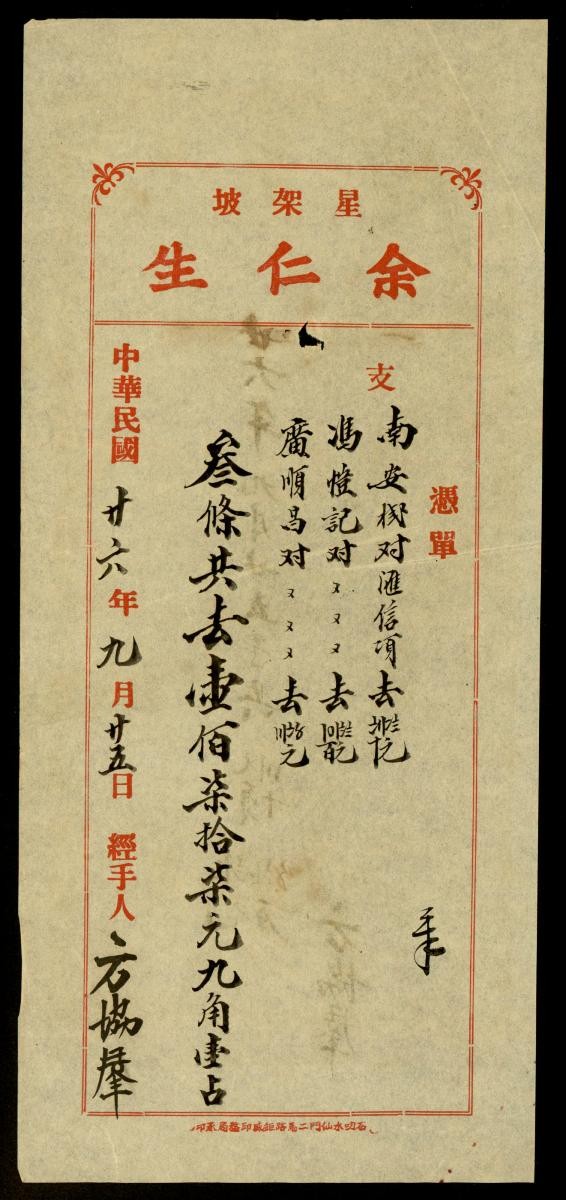 星架坡
余仁生
憑單
支
南安棧对滙信項去
馮愷記对〻〻〻去
廣順昌对〻〻〻去
叁條共去壹佰柒拾柒元九角壹占
中華民國廿六年九月廿五日 經手人 方協羣